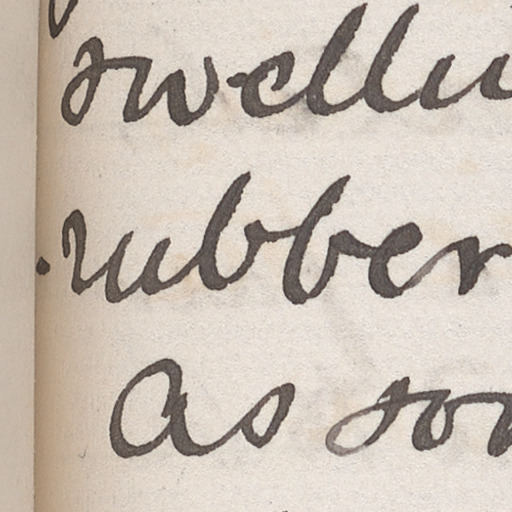 swellin
rubber
As soo